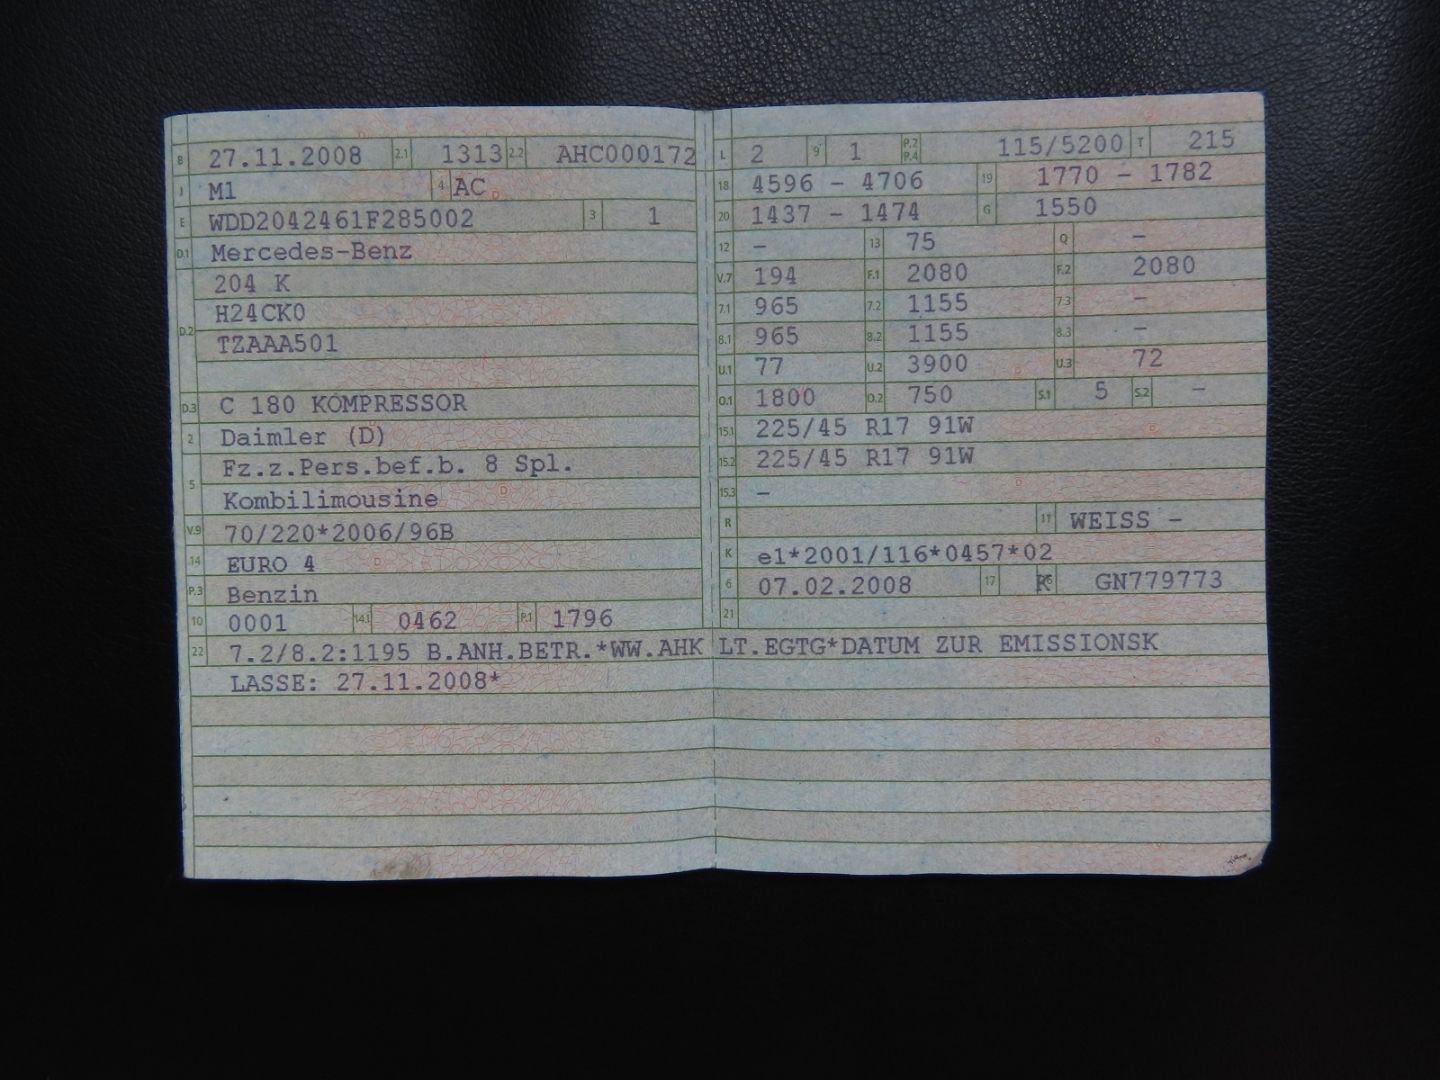 B 27.11.2008 2.1 1313 2.2 AHC000172
J M1 4 AC
E WDD2042461F285002 3 1
D.1 Mercedes-Benz
204 K
H24CK0
D.2 TZAAA501
D.3 C 180 KOMPRESSOR
2 Daimler (D)
Fz.z.Pers.bef.b. 8 Spl.
5 Kombilimousine
V.9 70/220*2006/96B
14 EURO 4
P.3 Benzin
10 0001 14.1 0462 P.1 1796
L 2 9 1 P.2 P.4 115/5200 T 215
18 4596 - 4706 19 1770 - 1782
20 1437 - 1474 G 1550
12 - 13 75 Q -
V.7 194 F.1 2080 F.2 2080
7.1 965 7.2 1155 7.3 -
8.1 965 8.2 1155 8.3 -
U.1 77 U.2 3900 U.3 72
O.1 1800 O.2 750 S.1 5 S.2 -
15.1 225/45 R17 91W
15.2 225/45 R17 91W
15.3 -
R 11 WEISS -
K e1*2001/116*0457*02
6 07.02.2008 17 K 16 GN779773
21
22 7.2/8.2:1195 B.ANH.BETR.*WW.AHK LT.EGTG*DATUM ZUR EMISSIONSK
LASSE: 27.11.2008*